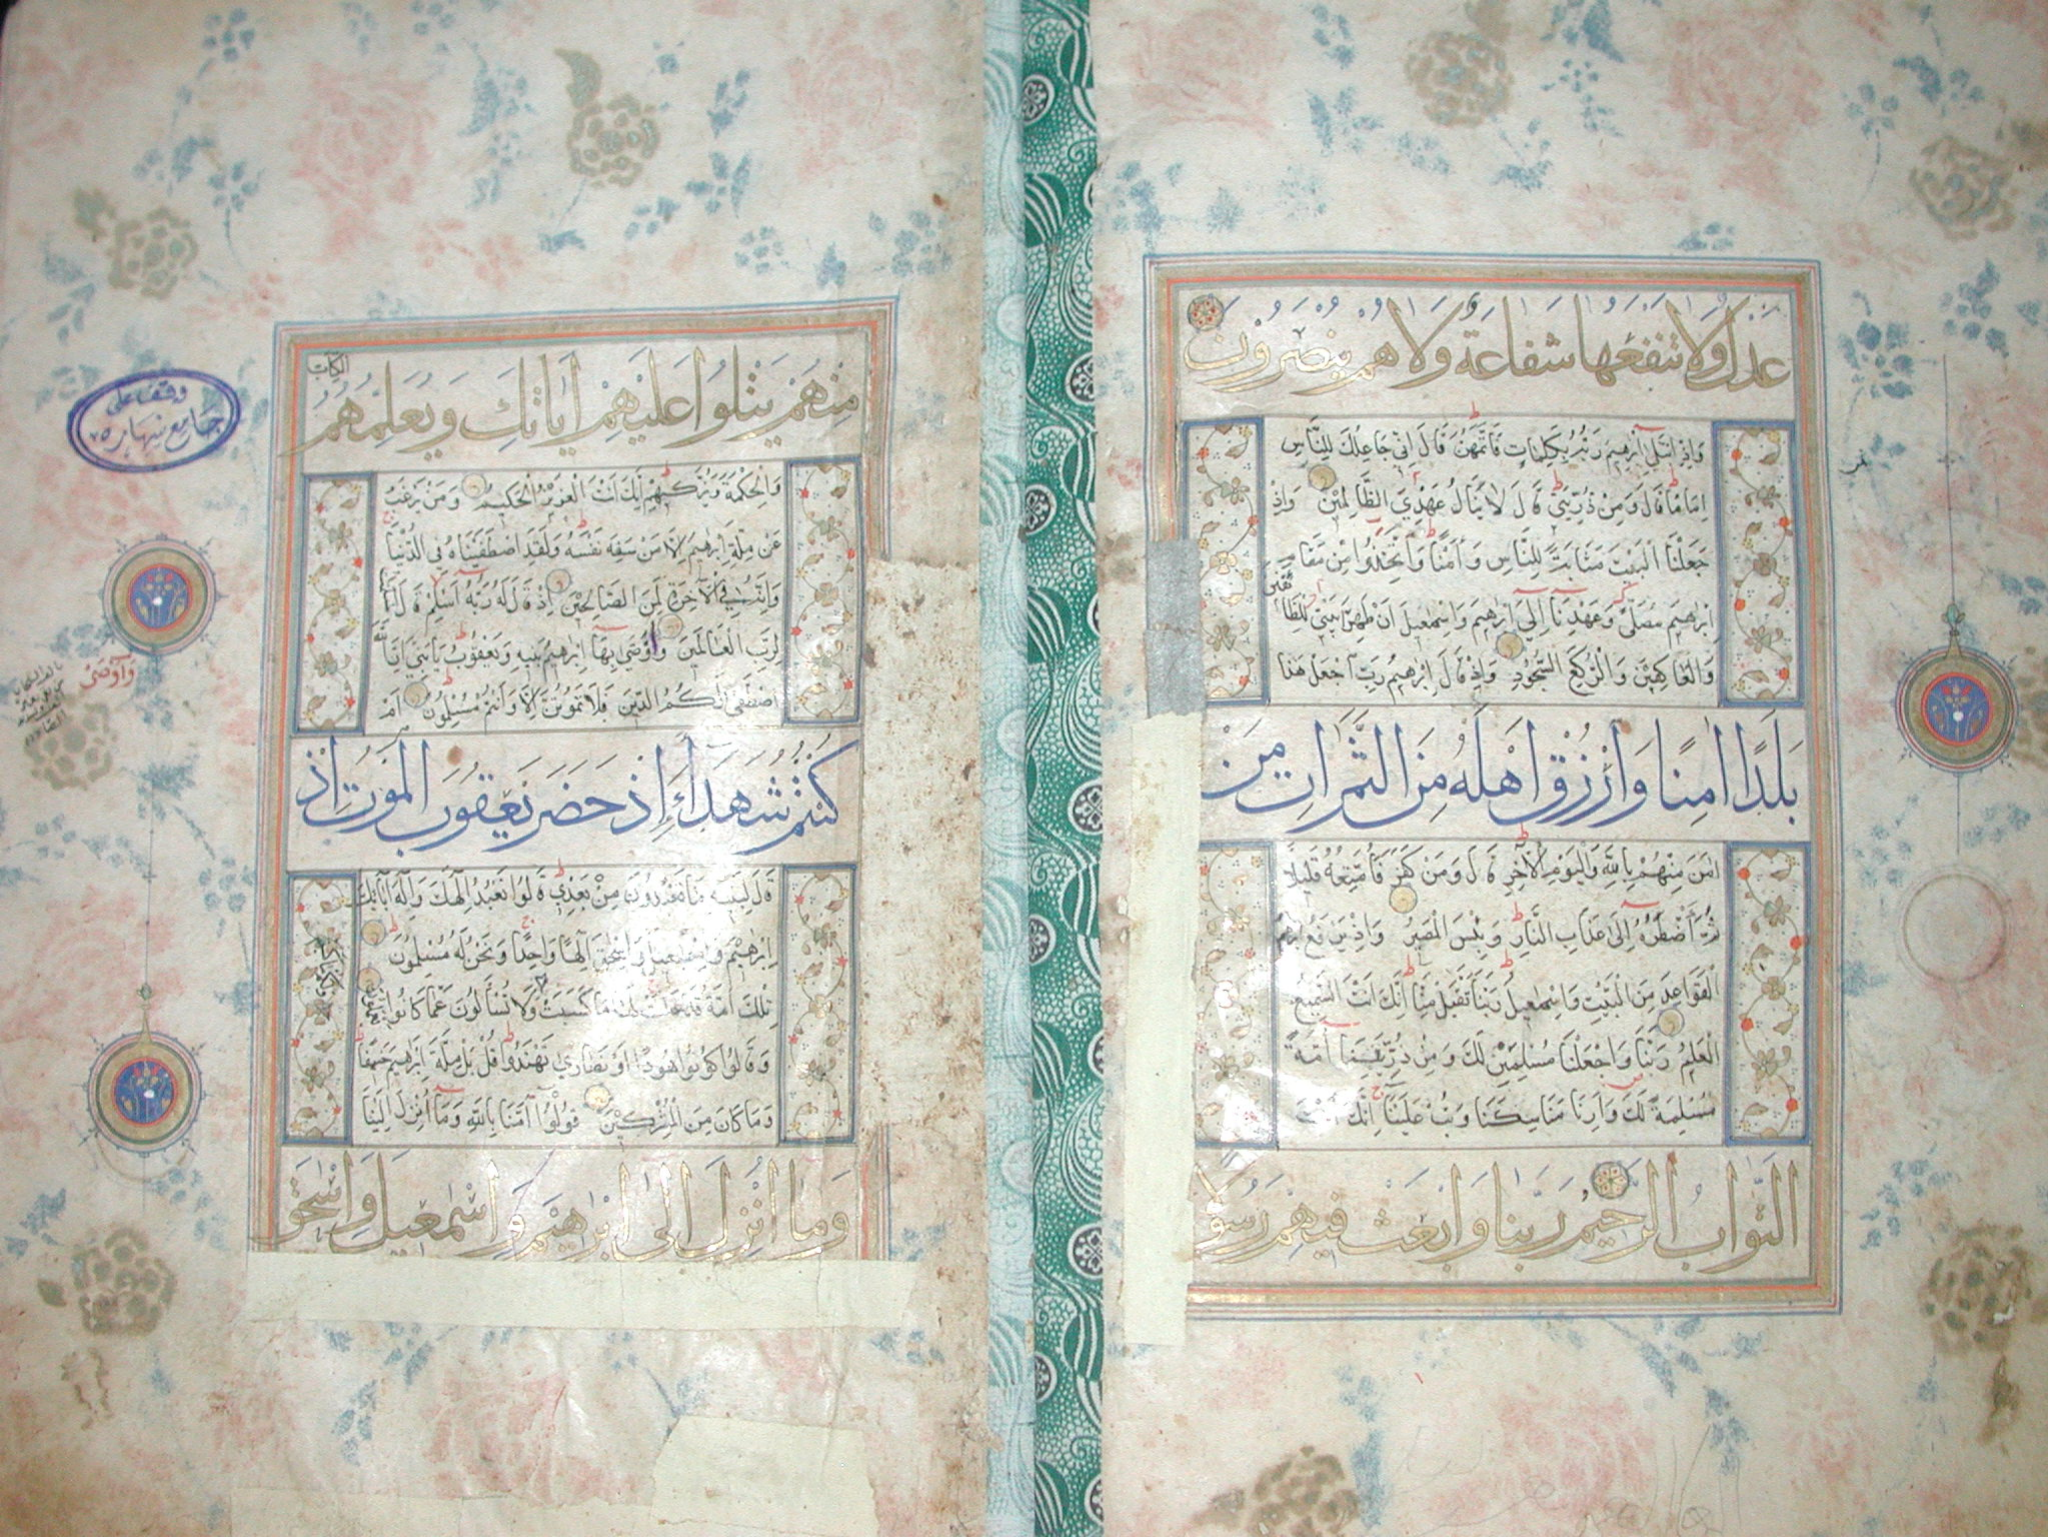 عدل ولا تنفعها شفاعة ولا هم ينصرون
واذ ابتلى ابرهيم ربه بكلمات فاتمهن قال اني جاعلك للناس
اماما قال ومن ذريتي قال لا ينال عهدي الظالمين واذ
جعلنا البيت مثابة للناس وامنا واتخذوا من مقام
ابرهيم مصلى وعهدنا الى ابرهيم واسمعيل ان طهرا بيتي للطا
ئفين
والعاكفين والركع السجود واذ قال ابرهيم رب اجعل هذا
بلدا امنا وارزق اهله من الثمرات من
امن منهم بالله واليوم الاخر قال ومن كفر فامتعه قليلا
ثم اضطره الى عذاب النار وبئس المصير واذ يرفع ابرهيم
القواعد من البيت واسمعيل ربنا تقبل منا انك انت السميع
العليم ربنا واجعلنا مسلمين لك ومن ذريتنا امة
مسلمة لك وارنا مناسكنا وتب علينا انك انت
التواب الرحيم ربنا وابعث فيهم رسولا
منهم يتلوا عليهم اياتك ويعلمهم
الكتاب
والحكمة ويزكيهم انك انت العزيز الحكيم ومن يرغب
عن ملة ابرهيم الا من سفه نفسه ولقد اصطفيناه في الدنيا
وانه في الآخرة لمن الصالحين اذ قال له ربه اسلم قال اسلمت
لرب العالمين واوصى بها ابرهيم بنيه ويعقوب يا بني ان الله
اصطفى لكم الدين فلا تموتن الا وانتم مسلمون ام
كنتم شهداء إذ حضر يعقوب الموت اذ
قال لبنيه ما تعبدون من بعدي قالوا نعبد الهك واله ابائك
ابرهيم واسمعيل واسحق الها واحدا ونحن له مسلمون
تلك امة قد خلت لها ما كسبت ولا تسألون عما كانوا يعملون
وقالوا كونوا هودا او نصارى تهتدوا قل بل ملة ابرهيم حنيفا
وما كان من المشركين قولوا آمنا بالله وما انزل الينا
وما انزل الى ابرهيم واسمعيل واسحق
وقف على
جامع نهاره
واوصى